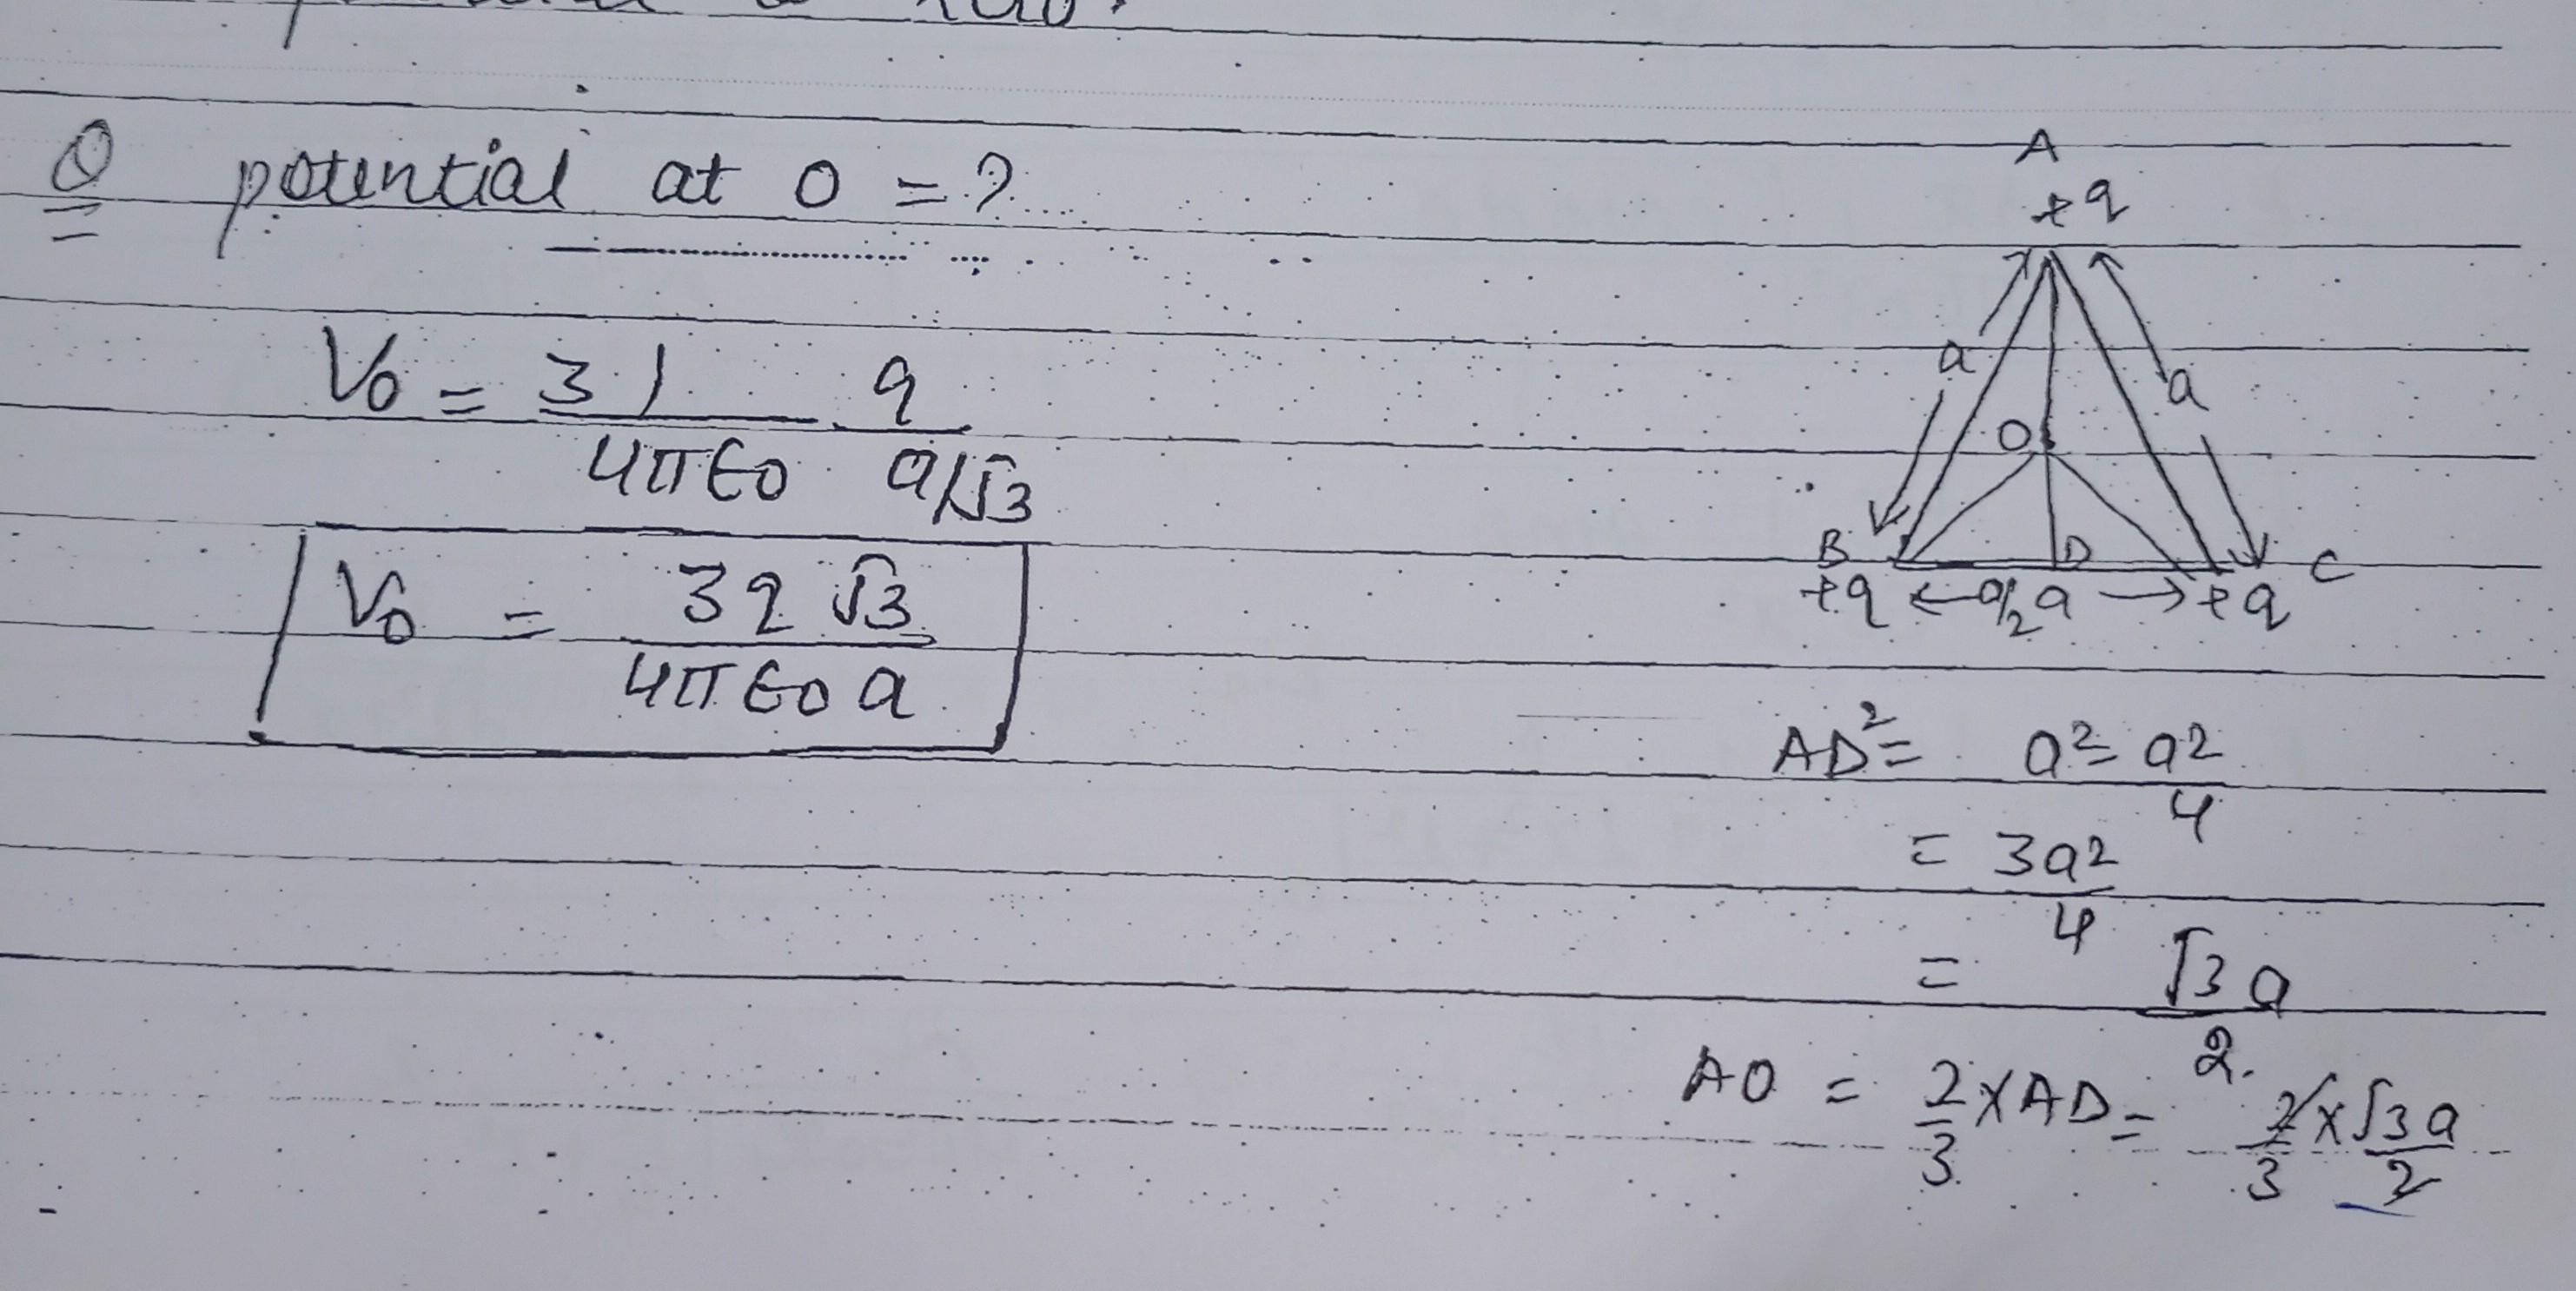 Q potential at O = ?
V₀ = 3 1/4πϵ₀ q/a/√3
V₀ = 3q√3/4πϵ₀a
A
+q
a
a
O
B
D
C
+q ← a/2 a → +q
AD² = a² - a²/4
= 3a²/4
= √3a/2.
AO = 2/3 × AD = 2/3 × √3a/2